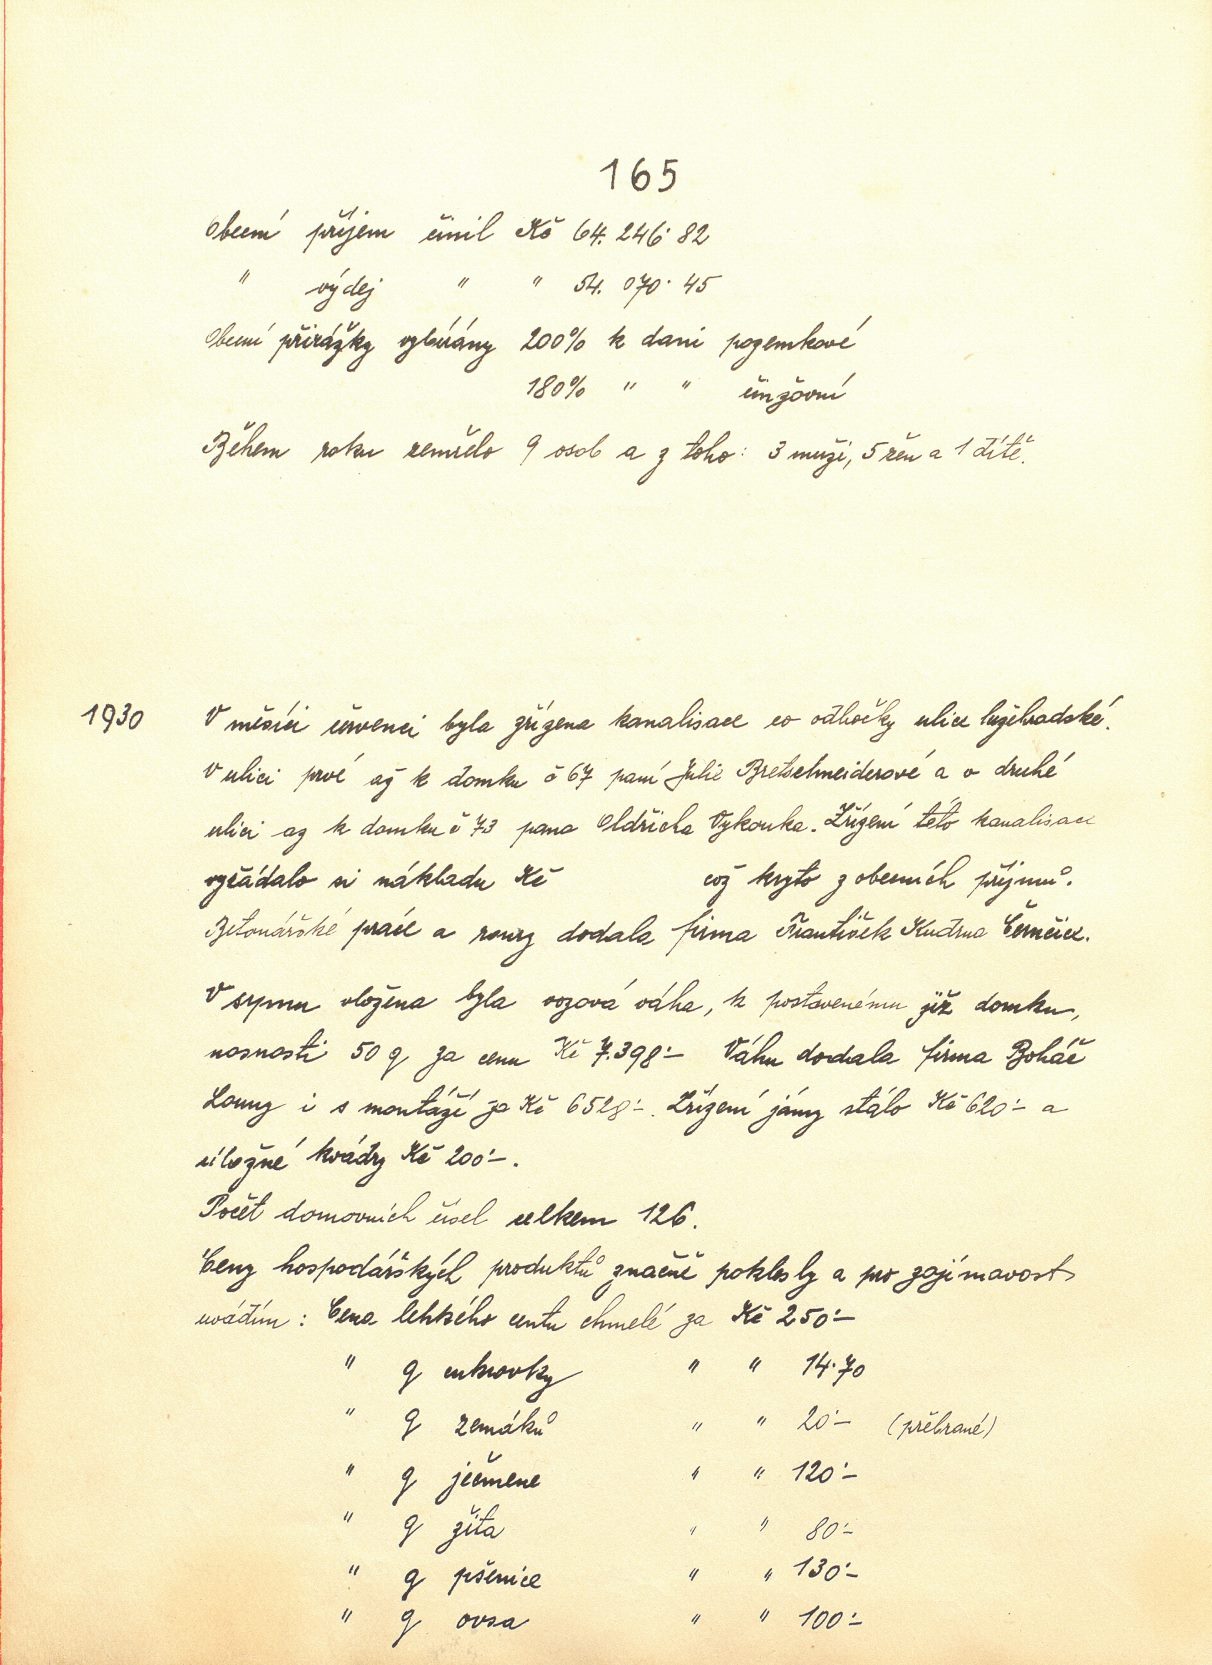 165
Obecní příjem činil Kč 64.246·82
" výdej " " 54.070·45
Obecní přirážky vybírány 200% k dani pozemkové
180% " " činžovní
Během roku zemřelo 9 osob a z toho: 3 muži, 5 žen a 1 dítě.
1930 V měsíci červenci byla zřízena kanalisace co odbočky ulice lužehradské.
V ulici prvé až k domku č 67 paní Julie Bretschneiderové a v druhé
ulici až k domku č 73 pana Oldřicha Vykouka. Zřízení této kanalisace
vyžádalo si nákladu Kč což kryto z obecních příjmů.
Betonářské práce a roury dodala firma František Kudrna Černčice.
V srpnu vložena byla vozová váha, k postavenému již domku,
nosnosti 50 q za cenu Kč 7.398·– Váhu dodala firma Boháč
Louny i s montáží za Kč 6528·–. Zřízení jámy stálo Kč 620·– a
úložné kvádry Kč 200·–.
Počet domovních čísel celkem 126.
Ceny hospodářských produktů značně poklesly a pro zajímavost
uvádím: Cena lehkého centu chmele za Kč 250·–
" q cukrovky " " 14·70
" q zemáků " " 20·– (přebrané)
" q ječmene " " 120·–
" q žita " " 80·–
" q pšenice " " 130·–
" q ovsa " " 100·–